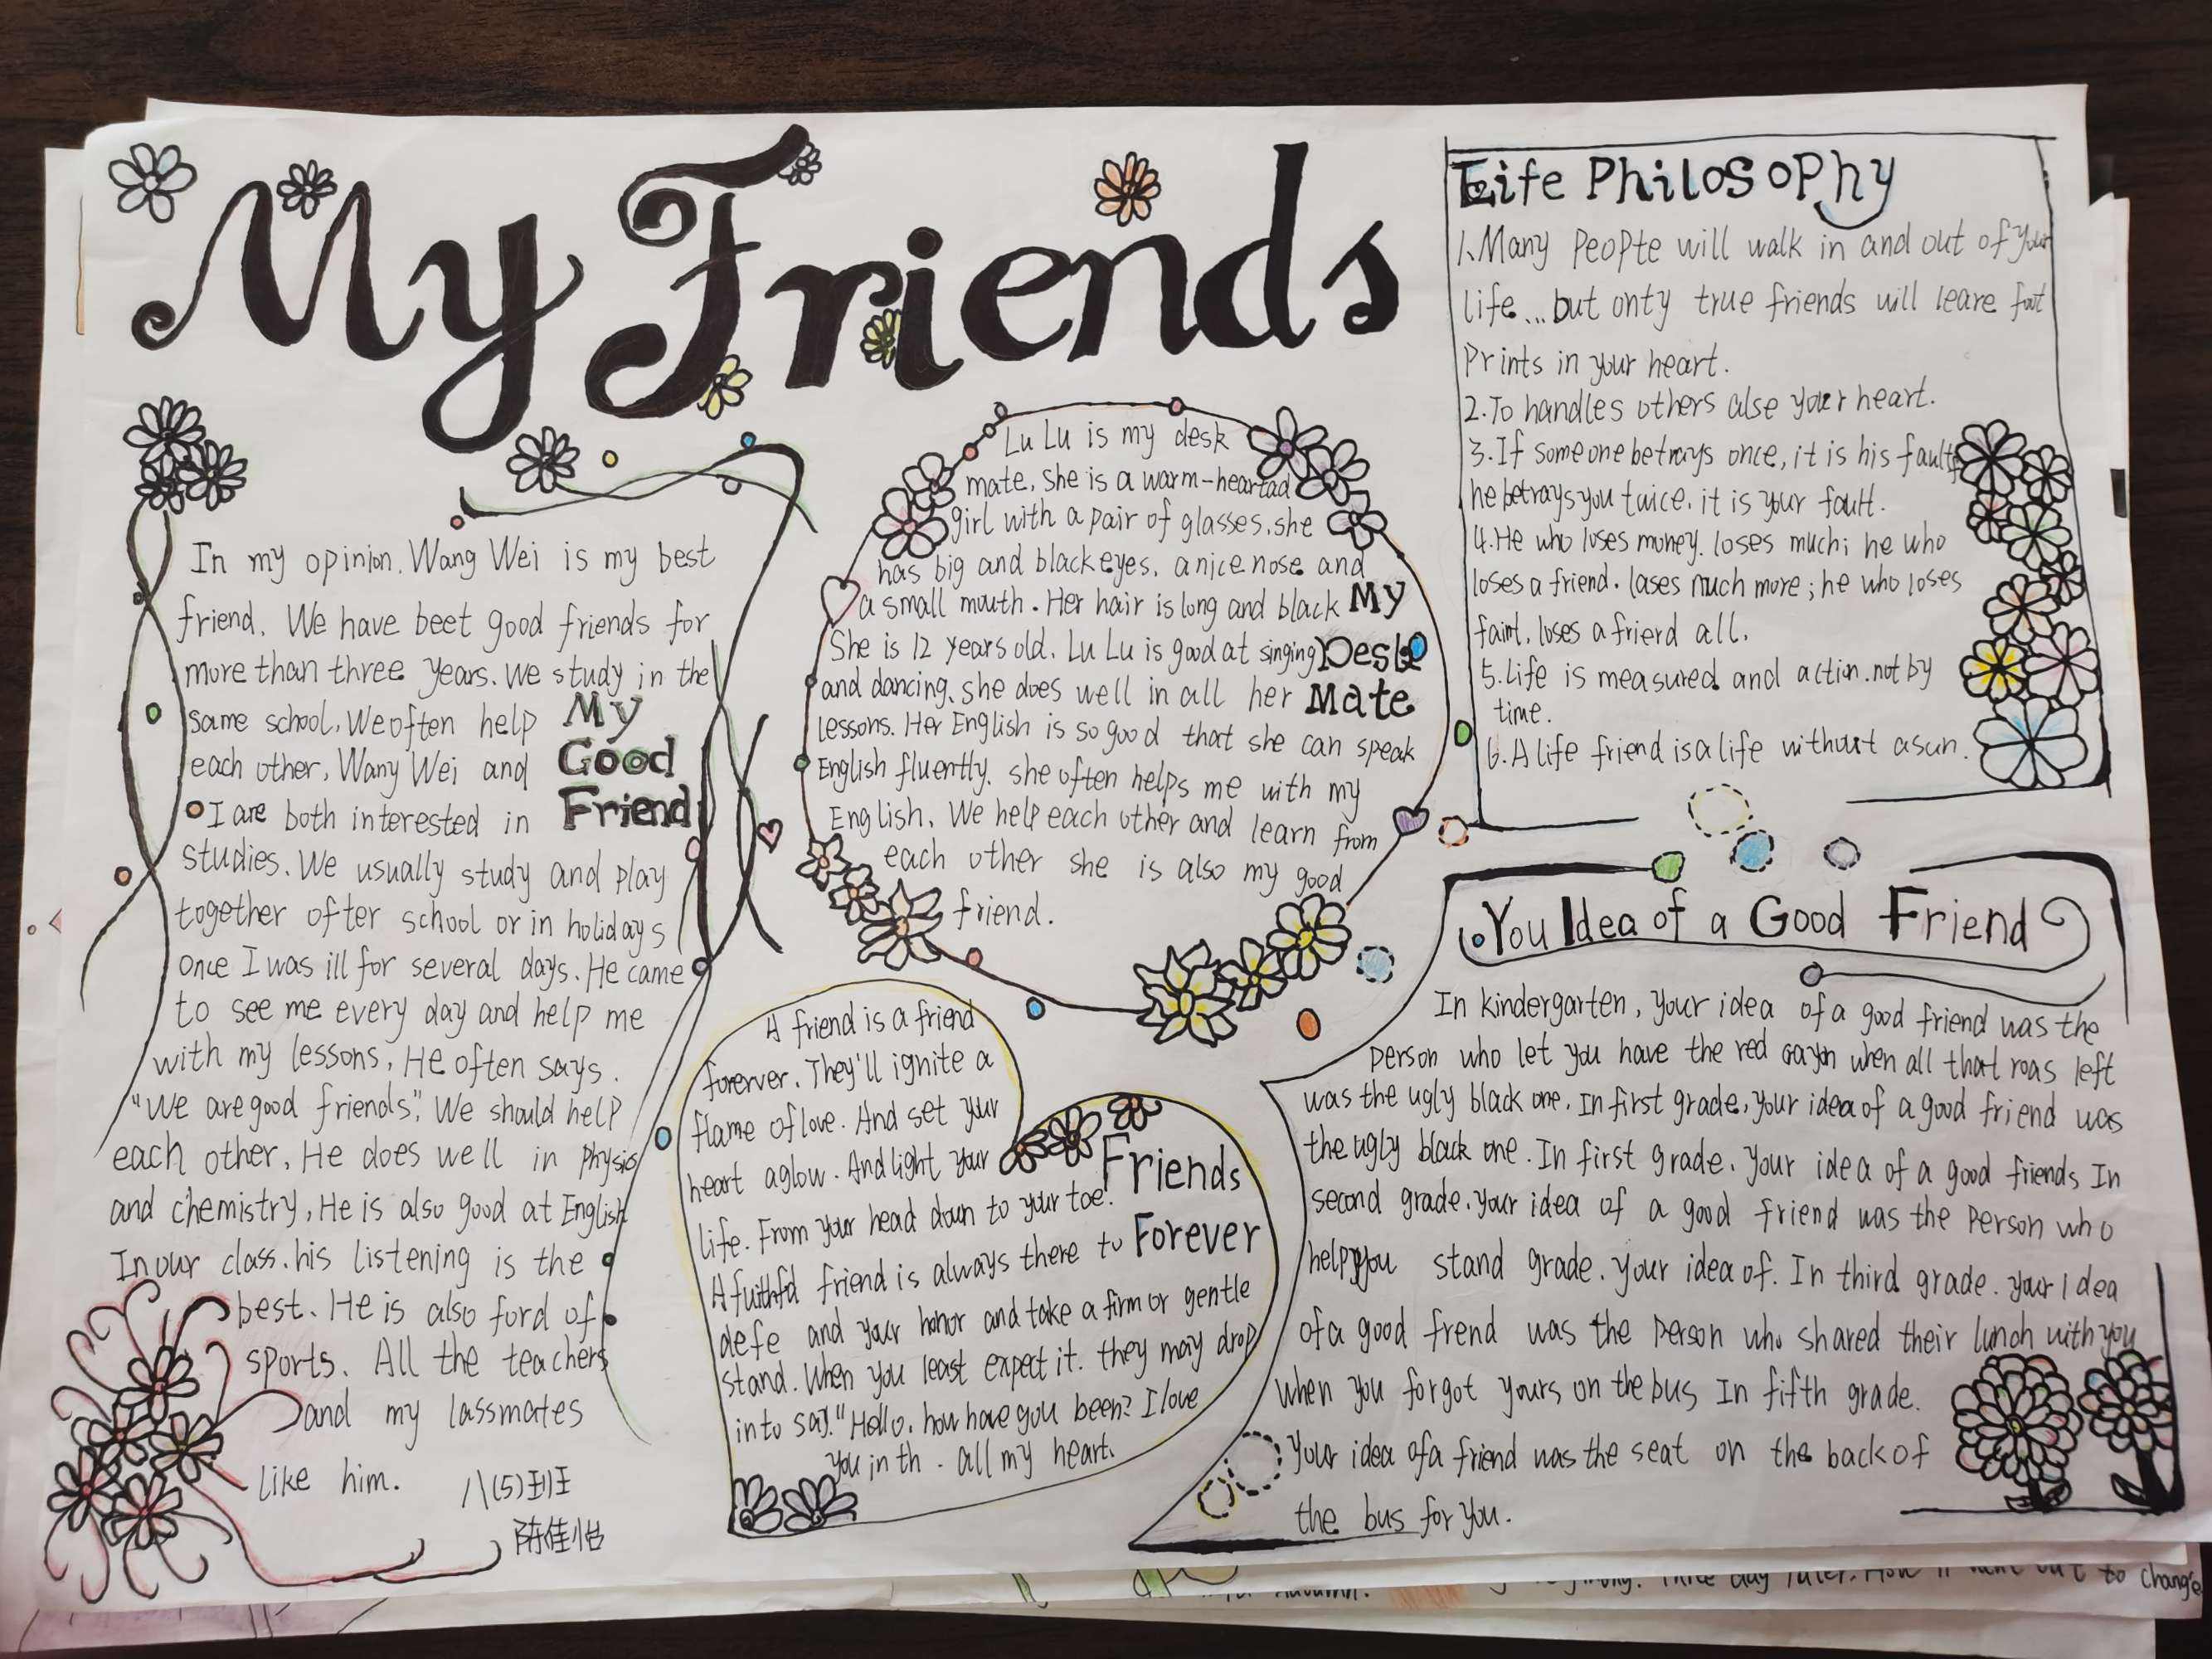 My Friends
In my opinion. Wang Wei is my best
friend. We have beet good friends for
more than three years. We study in the
same school. We often help
each other, Wany Wei and
I are both interested in
studies. We usually study and play
together ofter school or in holidays
once I was ill for several days. He came
to see me every day and help me
with my lessons, He often says.
"We are good friends". We should help
each other, He does well in physis
and chemistry, He is also good at English
In our class. his listening is the
best. He is also ford of
sports. All the teachers
and my lassmates
like him.
八(5)班
陈佳怡
My
Good
Friend
Lu Lu is my desk
mate, She is a warm-heartad
girl with a pair of glasses. she
has big and black eyes. a nice nose and
a small mouth. Her hair is long and black
She is 12 years old. Lu Lu is good at singing
and dancing. she does well in all her
lessons. Her English is so good that she can speak
English fluently. she often helps me with my
English. We help each other and learn from
each other she is also my good
friend.
My
Desk
Mate
A friend is a friend
forerver. They'll ignite a
flame of love. And set your
heart aglow. And light your
life. From your head down to your toe.
A fuithfd friend is always there to
defe and your honor and take a firm or gentle
stand. When you least expect it. they may drop
in to say. "Hello, how have you been? I love
you in th. all my heart.
Friends
Forever
Life Philosophy
1. Many Peopte will walk in and out of your
life...but onty true friends will leare foot
Prints in your heart.
2. To handles others alse your heart.
3. If someone betrays once, it is his fault
he betrays you twice. it is your fault.
4. He who loses money. loses much; he who
loses a friend. lases much more; he who loses
faint. loses a frierd all.
5. Life is measured and action. not by
time.
6. A life friend is a life without a sun.
You Idea of a Good Friend
In kindergarten, your idea of a good friend was the
person who let you have the red when all that roas left
was the ugly black one. In first grade, your idea of a good friend was
the ugly black one. In first grade. your idea of a good friends In
second grade. your idea of a good friend was the person who
help you stand grade. your idea of. In third grade. your Idea
of a good frend was the person who shared their lunch with you
when you forgot yours on the bus In fifth grade.
Your idea of a friend was the seat on the back of
the bus for you.